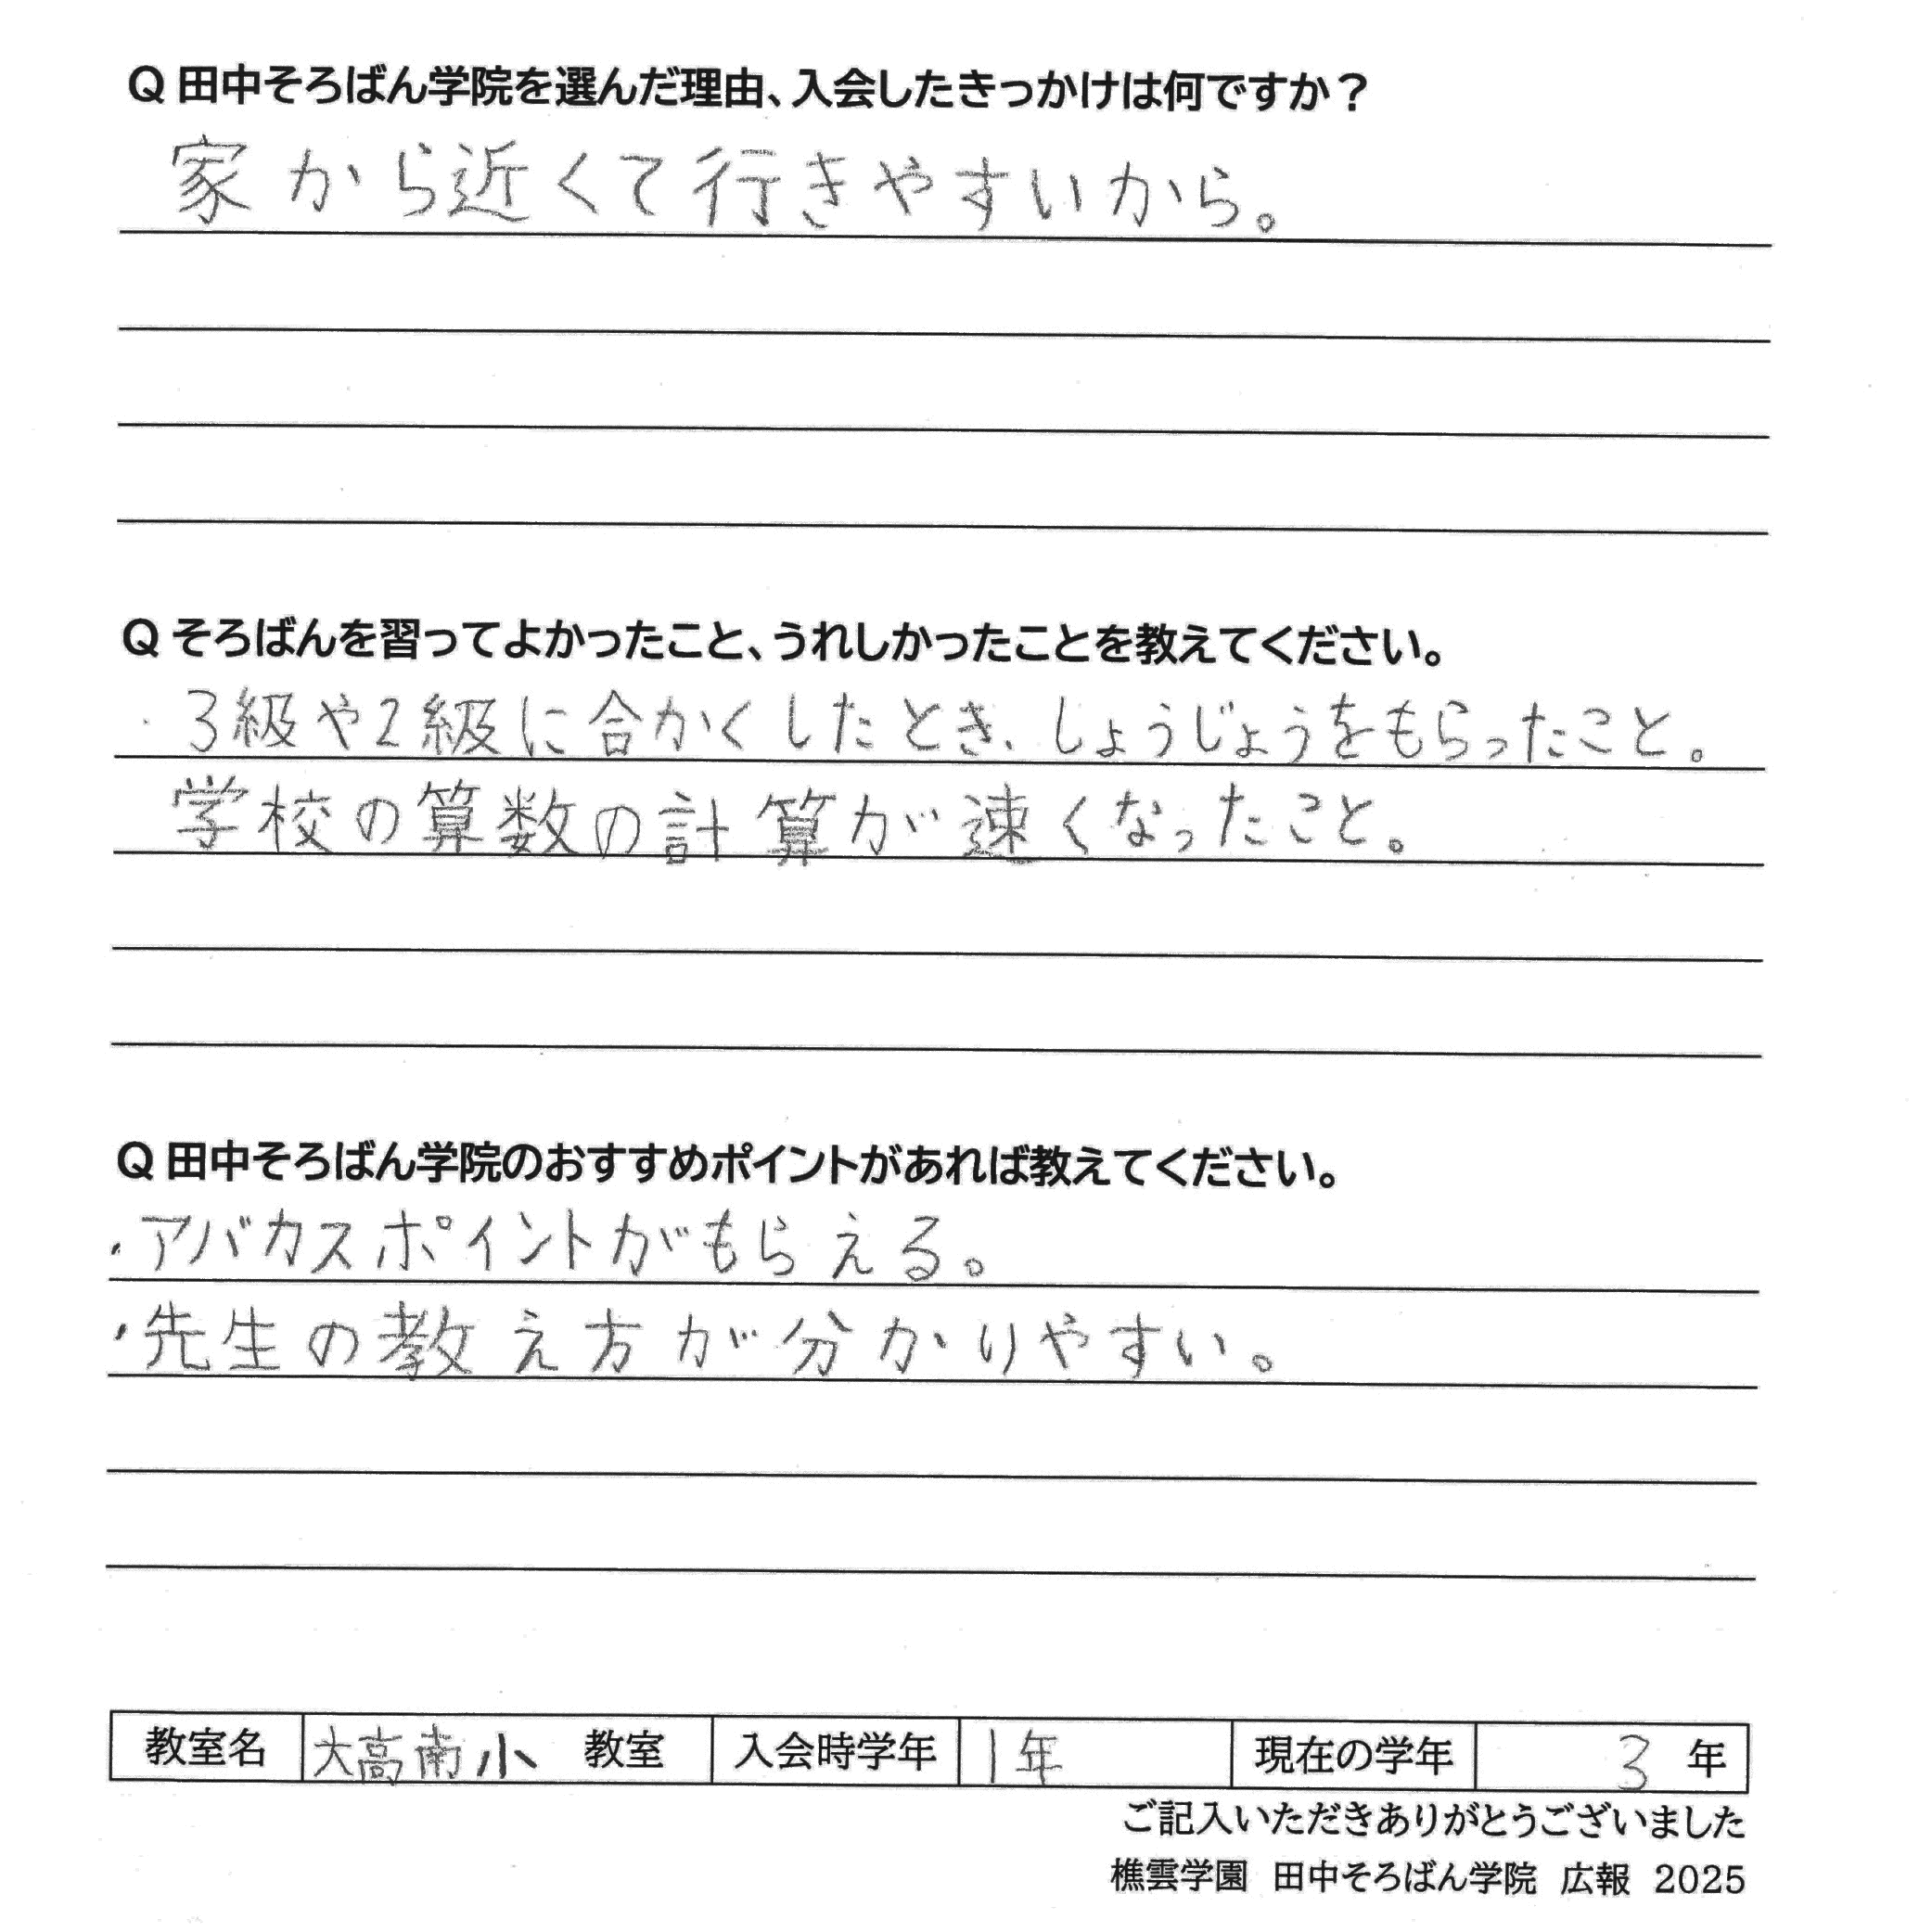 Q 田中そろばん学院を選んだ理由、入会したきっかけは何ですか？
家から近くて行きやすいから。
Q そろばんを習ってよかったこと、うれしかったことを教えてください。
・3級や2級に合かくしたとき、しょうじょうをもらったこと。
学校の算数の計算が速くなったこと。
Q 田中そろばん学院のおすすめポイントがあれば教えてください。
・アバカスポイントがもらえる。
・先生の教え方が分かりやすい。
教室名 大高南小 教室 入会時学年 1年 現在の学年 3 年
ご記入いただきありがとうございました
樵雲学園 田中そろばん学院 広報 2025